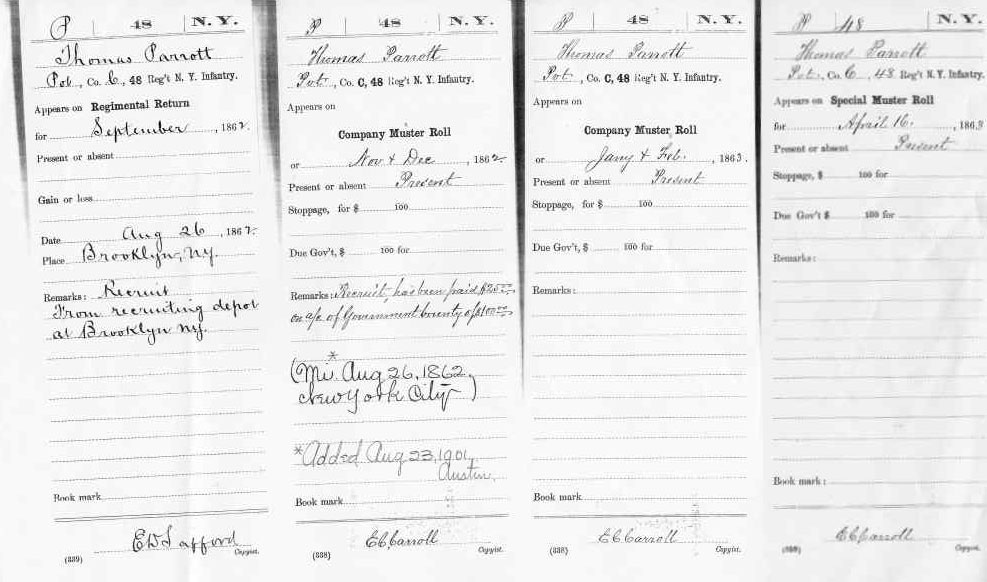 P | 48 | N. Y.
Thomas Parrott
Pvt, Co. C, 48 Reg't N. Y. Infantry.
Appears on Regimental Return
for September, 1862.
Present or absent
Gain or loss
Date Aug 26, 1862.
Place Brooklyn, N.Y.
Remarks: Recruit
From recruiting depot
at Brooklyn N.Y.
Book mark
Copyist.
(339)
P | 48 | N. Y.
Thomas Parrott
Pvt, Co. C, 48 Reg't N. Y. Infantry.
Appears on
Company Muster Roll
or Nov & Dec, 1862.
Present or absent Present
Stoppage, for $ 100
Due Gov't, $ 100 for
Remarks: Recruit, has been paid $25.00
on a/c of Government bounty of $100.00
*
(Mi. Aug 26, 1862,
New York City)
*Added Aug 23, 1901,
Austin.
Book mark
E C Carroll
(338) Copyist.
P | 48 | N. Y.
Thomas Parrott
Pvt, Co. C, 48 Reg't N. Y. Infantry.
Appears on
Company Muster Roll
or Jany & Feb., 1863.
Present or absent Present
Stoppage, for $ 100
Due Gov't, $ 100 for
Remarks:
Book mark
E C Carroll
(338) Copyist.
P | 48 | N. Y.
Thomas Parrott
Pvt, Co. C, 48 Reg't N. Y. Infantry.
Appears on Special Muster Roll
for April 16, 1863
Present or absent Present
Stoppage, $ 100 for
Due Gov't $ 100 for
Remarks:
Book mark:
E C Carroll
Copyist.